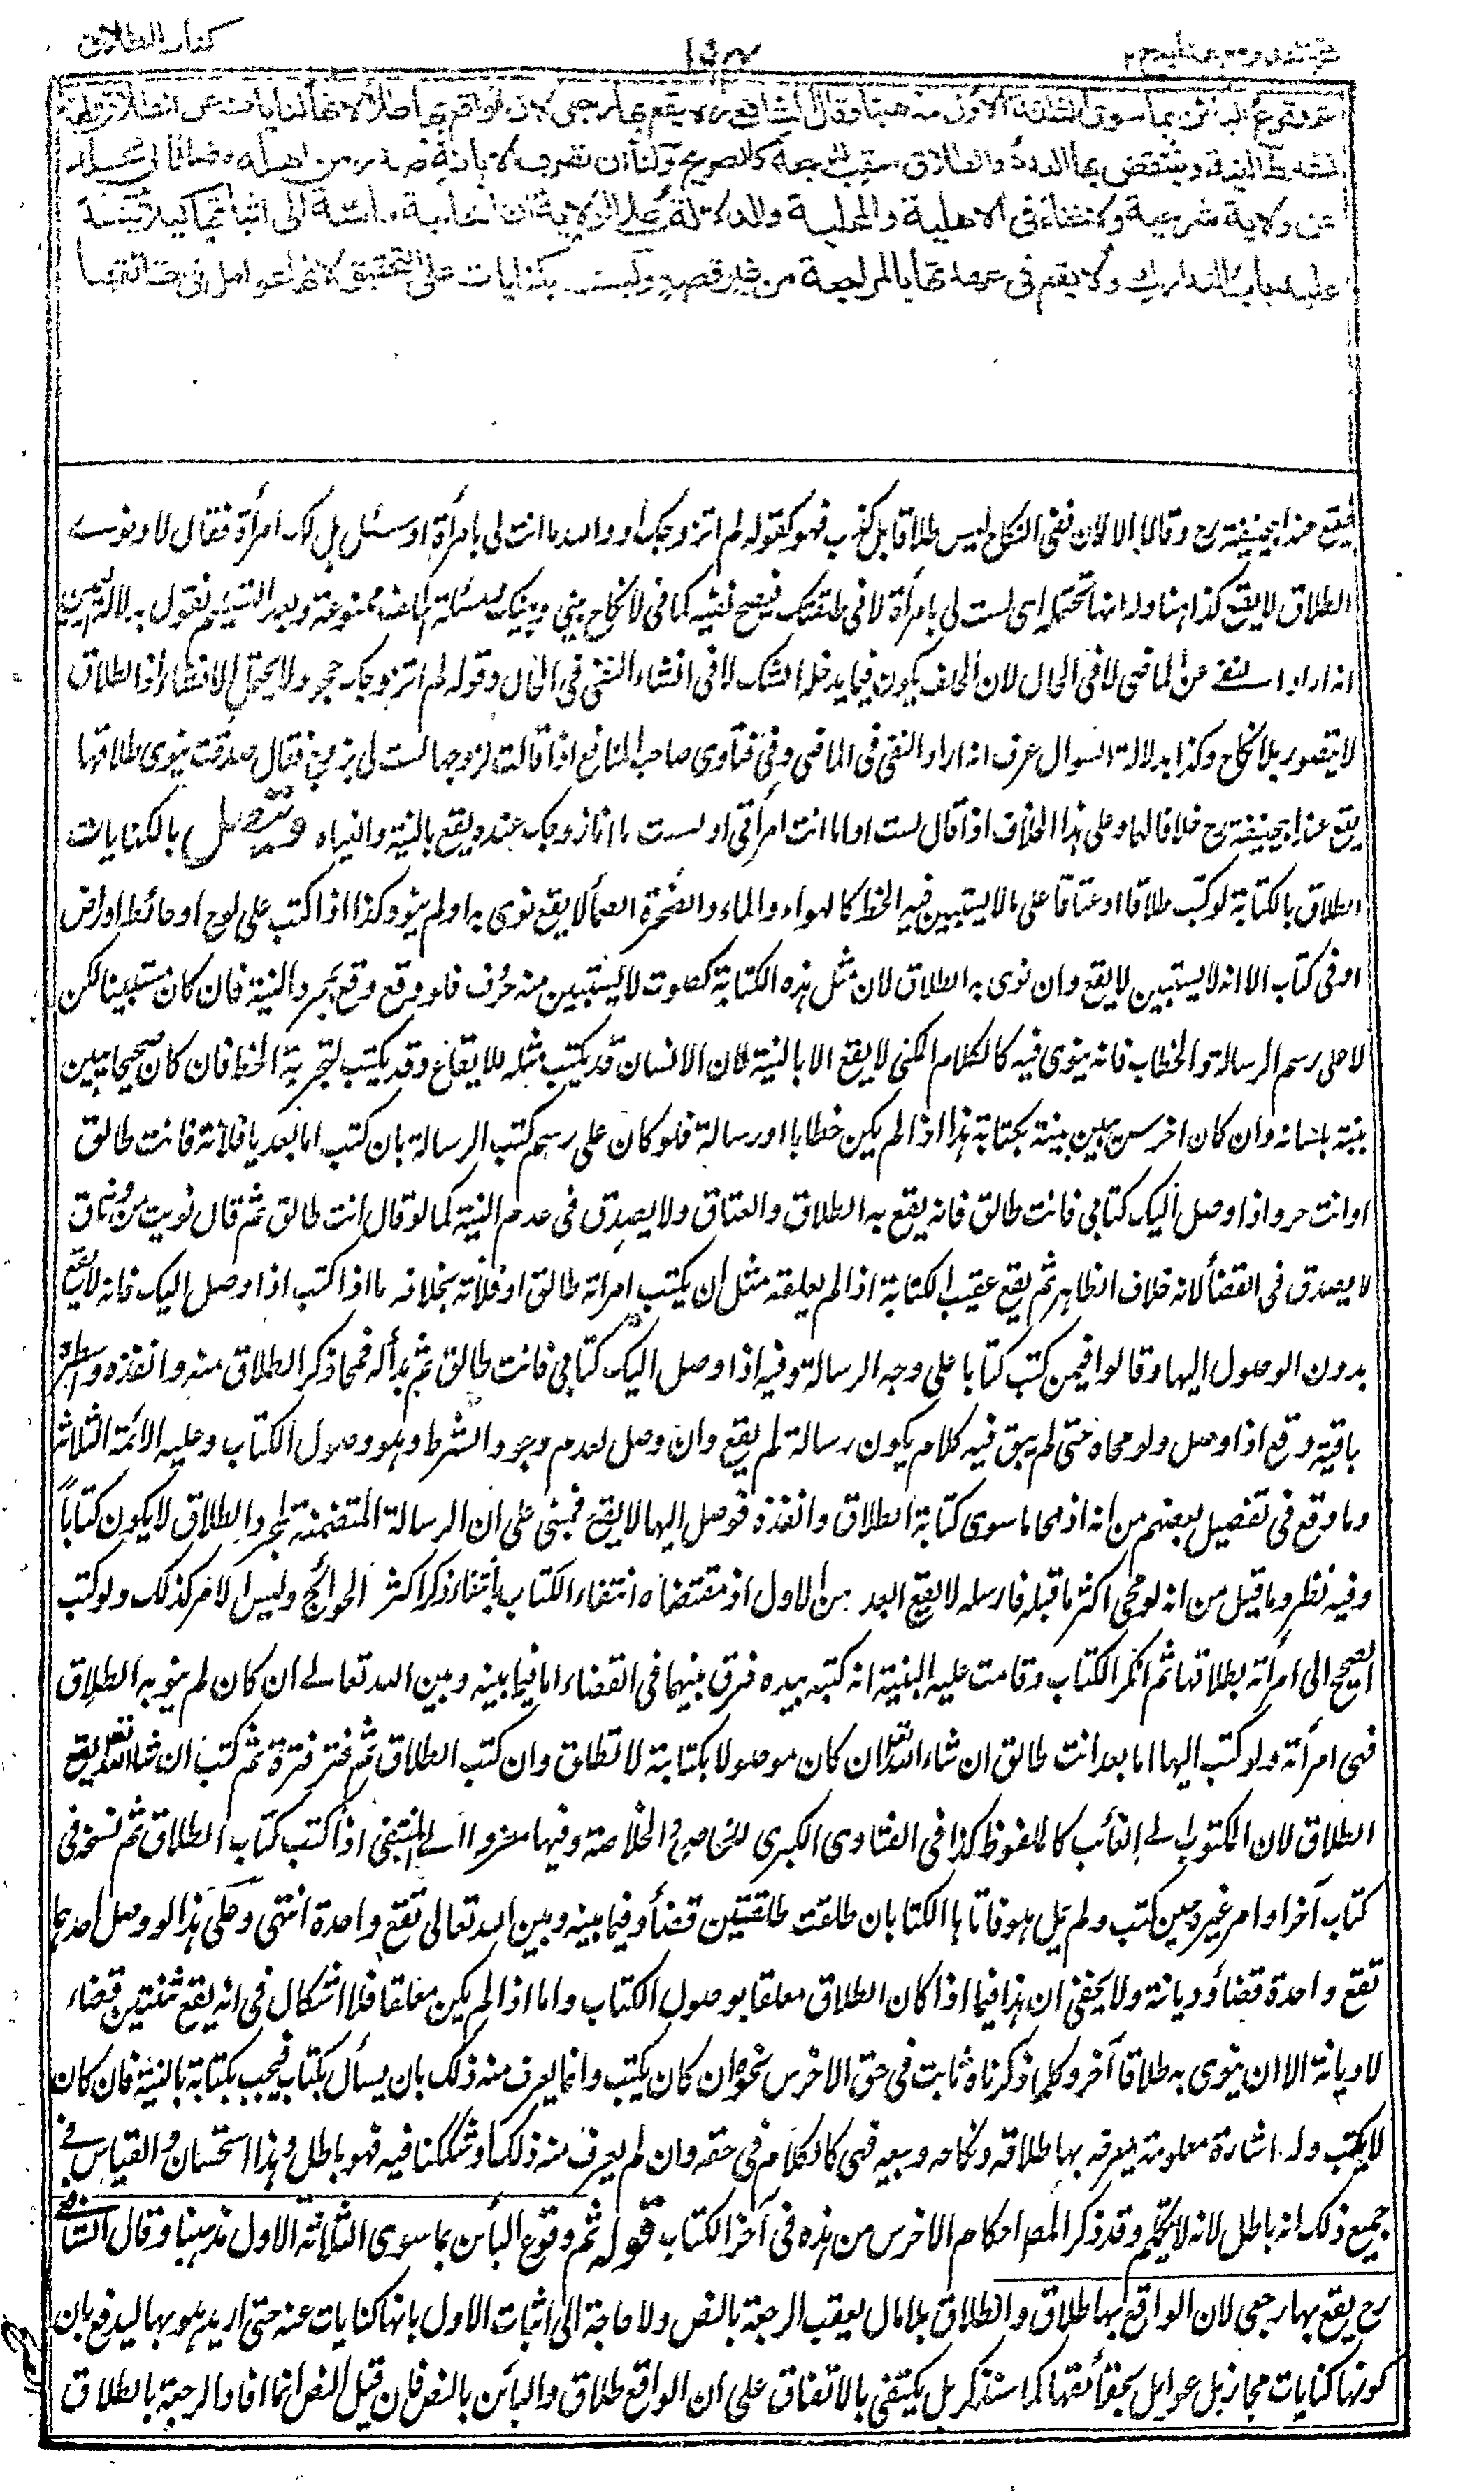 كتاب الطلاق
ثم وقوع البائن بما سوى الثلثة الاول مذهبنا وقال الشافعي رح يقع بها رجعي لان الواقع بها طلاق لانها كنايات عن الطلاق ولهذا
تشترط النية وينتقض بها العدد والطلاق معقب للرجعة كالصريح ولنا ان تصرف الابانة صدر من اهله مضافا الى محله
عن ولاية شرعية ولا خفاء فى الاهلية والمحلية والدلالة على الولاية ان الحاجة ماسة الى اثباتها كيلا ينسد
عليه باب التدارك ولا يقع فى عهدتها بالمراجعة من غير قصد وليست بكنايات على التحقيق لانها عوامل فى حقائقها
يقع عند ابيحنيفة رح وقالا لا لان نفى النكاح ليس طلاقا بل كذب فهو كقوله لم اتزوجك او والله ما انت لى بامرأة او سئل هل لك امرأة فقال لا ونوى
الطلاق لا يقع كذا هنا وله انها تحتمله اى لست لى بامرأة لانى طلقتك فيصح نفيه كما فى لا نكاح بينى وبينك ومسئلة الحلف ممنوعة وبعد التسليم نقول بدلالة اليمين
انه اراد النفى عن الماضى لا فى الحال لان الحلف يكون فيما يدخله الشك لا فى انشاء النفى فى الحال وقوله لم اتزوجك جحود ولا يحتمل الانشاء اذ الطلاق
لا يتصور بلا نكاح وكذا بدلالة السوال عرف انه اراد النفى فى الماضى وفى فتاوى صاحب المنافع اذا قالت لزوجها لست لى بزوج فقال صدقت ينوى طلاقها
يقع عند ابيحنيفة رح خلافا لهما وعلى هذا الخلاف اذا قال لست او ما انت امرأتى او لست او ما انا زوجك عنده يقع بالنية والغياه ويتصل بالكنايات
الطلاق بالكتابة لو كتب طلاقا او عتاقا على ما لا يستبين فيه الخط كالهواء والماء والصخرة الصمأ لا يقع نوى به او لم ينو وكذا اذا كتب على لوح او حائط او ارض
او فى كتاب الا انه لا يستبين لا يقع وان نوى به الطلاق لان مثل هذه الكتابة كصوت لا يستبين منه حرف فلو وقع وقع بمجرد النية فان كان مستبينا لكن
لا على رسم الرسالة والخطاب فانه ينوى فيه كالكلام المكنى لا يقع الا بالنية لان الانسان قد يكتب مثله للايقاع وقد يكتب لتجربة الخط فان كان صحيحا يبين
نيته بلسانه وان كان اخرس يبين نيته بكتابة هذا اذا لم يكن خطابا او رسالة فلو كان على رسم كتب الرسالة بان كتب اما بعد يا فلانة فانت طالق
او انت حر واذا وصل اليك كتابى فانت طالق فانه يقع به الطلاق والعتاق ولا يصدق فى عدم النية كما لو قال انت طالق ثم قال نويت من وثاق
لا يصدق فى القضأ لانه خلاف الظاهر ثم يقع عقيب الكتابة اذا لم يعلقه مثل ان يكتب امرأته طالق او فلانة بخلاف ما اذا كتب اذا وصل اليك فانه لا يقع
بدون الوصول اليها وقالوا فيمن كتب كتابا على وجه الرسالة وفيه اذا وصل اليك كتابى فانت طالق ثم بدأ له فمحا ذكر الطلاق منه وانفذه واسطره
باقية وقع اذا وصل ولو محاه حتى لم يبق فيه كلام يكون رسالة لم يقع وان وصل لعدم وجود الشرط وهو وصول الكتاب وعليه الائمة الثلاثة
وما وقع فى تفصيل بعضهم من انه اذا محا ما سوى كتابة الطلاق وانفذه فوصل اليها لا يقع فمبنى على ان الرسالة المتضمنة لمجرد الطلاق لا يكون كتاباً
وفيه نظر وما قيل من انه لو محى اكثر ما قبله فارسله لا يقع ابعد من الاول اذ مقتضاه انتفاء الكتاب بانتفاء ذكر اكثر الحوائج وليس الامر كذلك ولو كتب
الصحيح الى امرأته بطلاقها ثم انكر الكتاب وقامت عليه البينة انه كتبه بيده فرق بينهما فى القضاء اما فيما بينه وبين الله تعالى ان كان لم ينو به الطلاق
فهى امرأته ولو كتب اليها اما بعد انت طالق ان شاء الله تعالى ان كان موصولا بكتابة لا تطلق وان كتب الطلاق ثم فتر فترة ثم كتب ان شاء الله تعالى يقع
الطلاق لان المكتوب الى الغائب كالملفوظ كذا فى الفتاوى الكبرى للخاصى والخلاصة وفيها معزوا الى المنتقى اذا كتب كتاب الطلاق ثم نسخه فى
كتاب آخر او امر غيره حين كتب ولم يمل هو فاتاها الكتابان طلقت طلقتين قضأ وفيما بينه وبين الله تعالى تقع واحدة انتهى وعلى هذا لو وصل احدهما
تقع واحدة قضأ وديانة ولا يخفى ان هذا فيما اذا كان الطلاق معلقا بوصول الكتاب واما اذا لم يكن معلقا فلا اشكال فى انه يقع ثنتين قضاء
لا ديانة الا ان ينوى به طلاقا آخر وكل ما ذكرناه ثابت فى حق الاخرس نحوه ان كان يكتب وانما يعرف منه ذلك بان يسأل بكتاب فيجب بكتابة بالنية فان كان
لا يكتب وله اشارة معلومة يعرف بها طلاقه ونكاحه وبيعه فهى كالكلام فى حقه وان لم يعرف منه ذلك او شككنا فيه فهو باطل وهذا استحسان والقياس فى
جميع ذلك انه باطل لانه لا يتكلم وقد ذكر المص احكام الاخرس من هذه فى آخر الكتاب قوله ثم وقوع البأئن بما سوى الثلاثة الاول مذهبنا وقال الشافعى
رح يقع بها رجعى لان الواقع بها طلاق والطلاق بلا مال يعقب الرجعة بالنص ولا حاجة الى اثبات الاول بانها كنايات عنه حتى اريد هو بها ليدفع بان
كونها كنايات مجاز بل عوامل بحقائقها كما سنذكر بل يكتفى بالاتفاق على ان الواقع طلاق والبأئن بالنص فان قيل النص انما افاد الرجعة بالطلاق